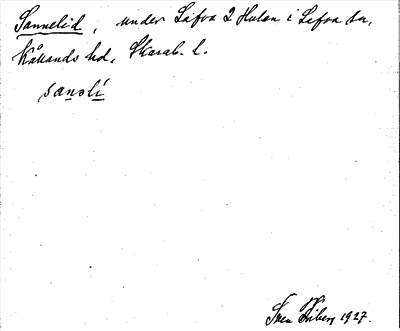 Sannelid, under Lifva 2 Hulan i Lefva sn,
Kåkands hd, Skarab. l.
sanəli
Sven Friberg 1927.